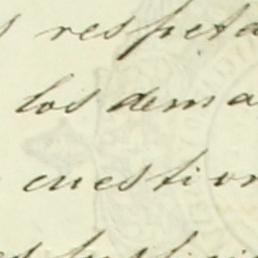 s respeta
los dema
cuestion